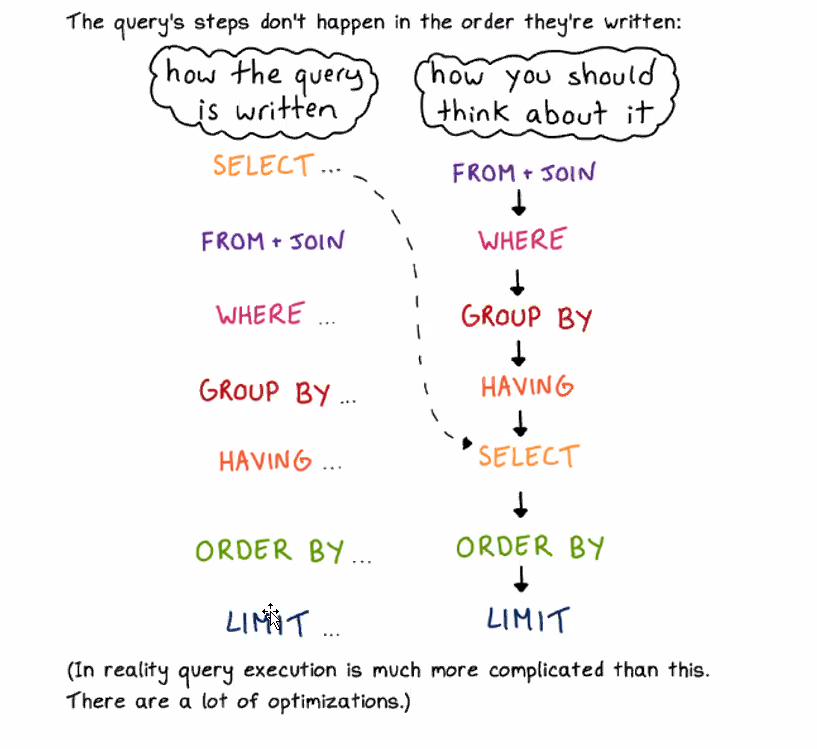 The query's steps don't happen in the order they're written:
how the query
is written
SELECT ...
FROM + JOIN
WHERE ...
GROUP BY ...
HAVING ...
ORDER BY ...
LIMIT ...
how you should
think about it
FROM + JOIN
WHERE
GROUP BY
HAVING
SELECT
ORDER BY
LIMIT
(In reality query execution is much more complicated than this.
There are a lot of optimizations.)